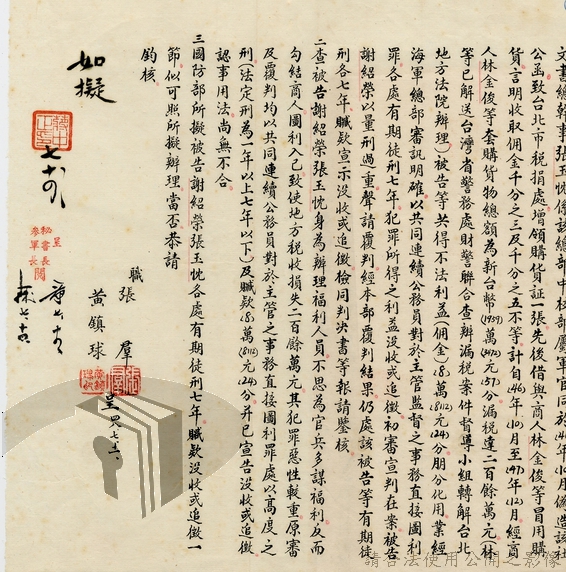 文書總幹事張玉忱係該總部中校部屬軍官同於(46)年(10)月偽造該社
公函致台北市稅捐處增領購貨証一張先後借與商人林金俊等冒用購
貨言明收取佣金千分之三及千分之五不等計自(46)年(10)月至(47)年(12)月經商
人林金俊等套購貨物總額為新台幣(1939)萬(3472)元(57)分漏稅達二百餘萬元(林
等已解送台灣省警務處財警聯合查辦漏稅案件督導小組轉解台北
地方法院辦理)被告等共得不法利益佣金(8)萬(8112)元(24)分朋分化用業經
海軍總部審訊明確以共同連續公務員對於主管監督之事務直接圖利
罪各處有期徒刑七年犯罪所得之利益沒收或追徵初審宣判在案被告
謝紹榮以量刑過重聲請覆判經本部覆判結果仍處該被告等有期徒
刑各七年贓款宣示沒收或追徵檢同判決書等報請鑒核
二查被告謝紹榮張玉忱身為辦理福利人員不思為官兵多謀福利反而
勾結商人圖利入己致使地方稅收損失二百餘萬元其犯罪惡性較重原審
及覆判均以共同連續公務員對於主管之事務直接圖利罪處以高度之
刑(法定刑為一年以上七年以下)及贓款(8)萬(8112)元(24)分并已宣告沒收或追徵
認事用法尚無不合
三國防部所擬被告謝紹榮張玉忱各處有期徒刑七年贓款沒收或追徵一
節似可照所擬辦理當否恭請
鈞核
職張羣
黃鎮球
呈
四八七
呈
秘書長
參軍長
閱
如擬
蔣中正印
七十四
請合法使用公開之影像